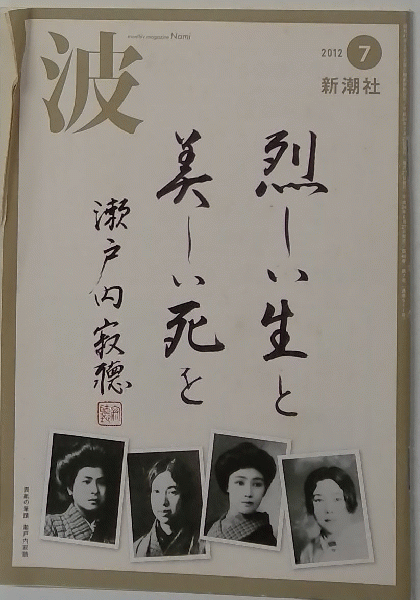 波
monthly magazine Nami
2012 7
新潮社
烈しい生と
美しい死を
瀬戸内寂聴
表紙の筆蹟 瀬戸内寂聴